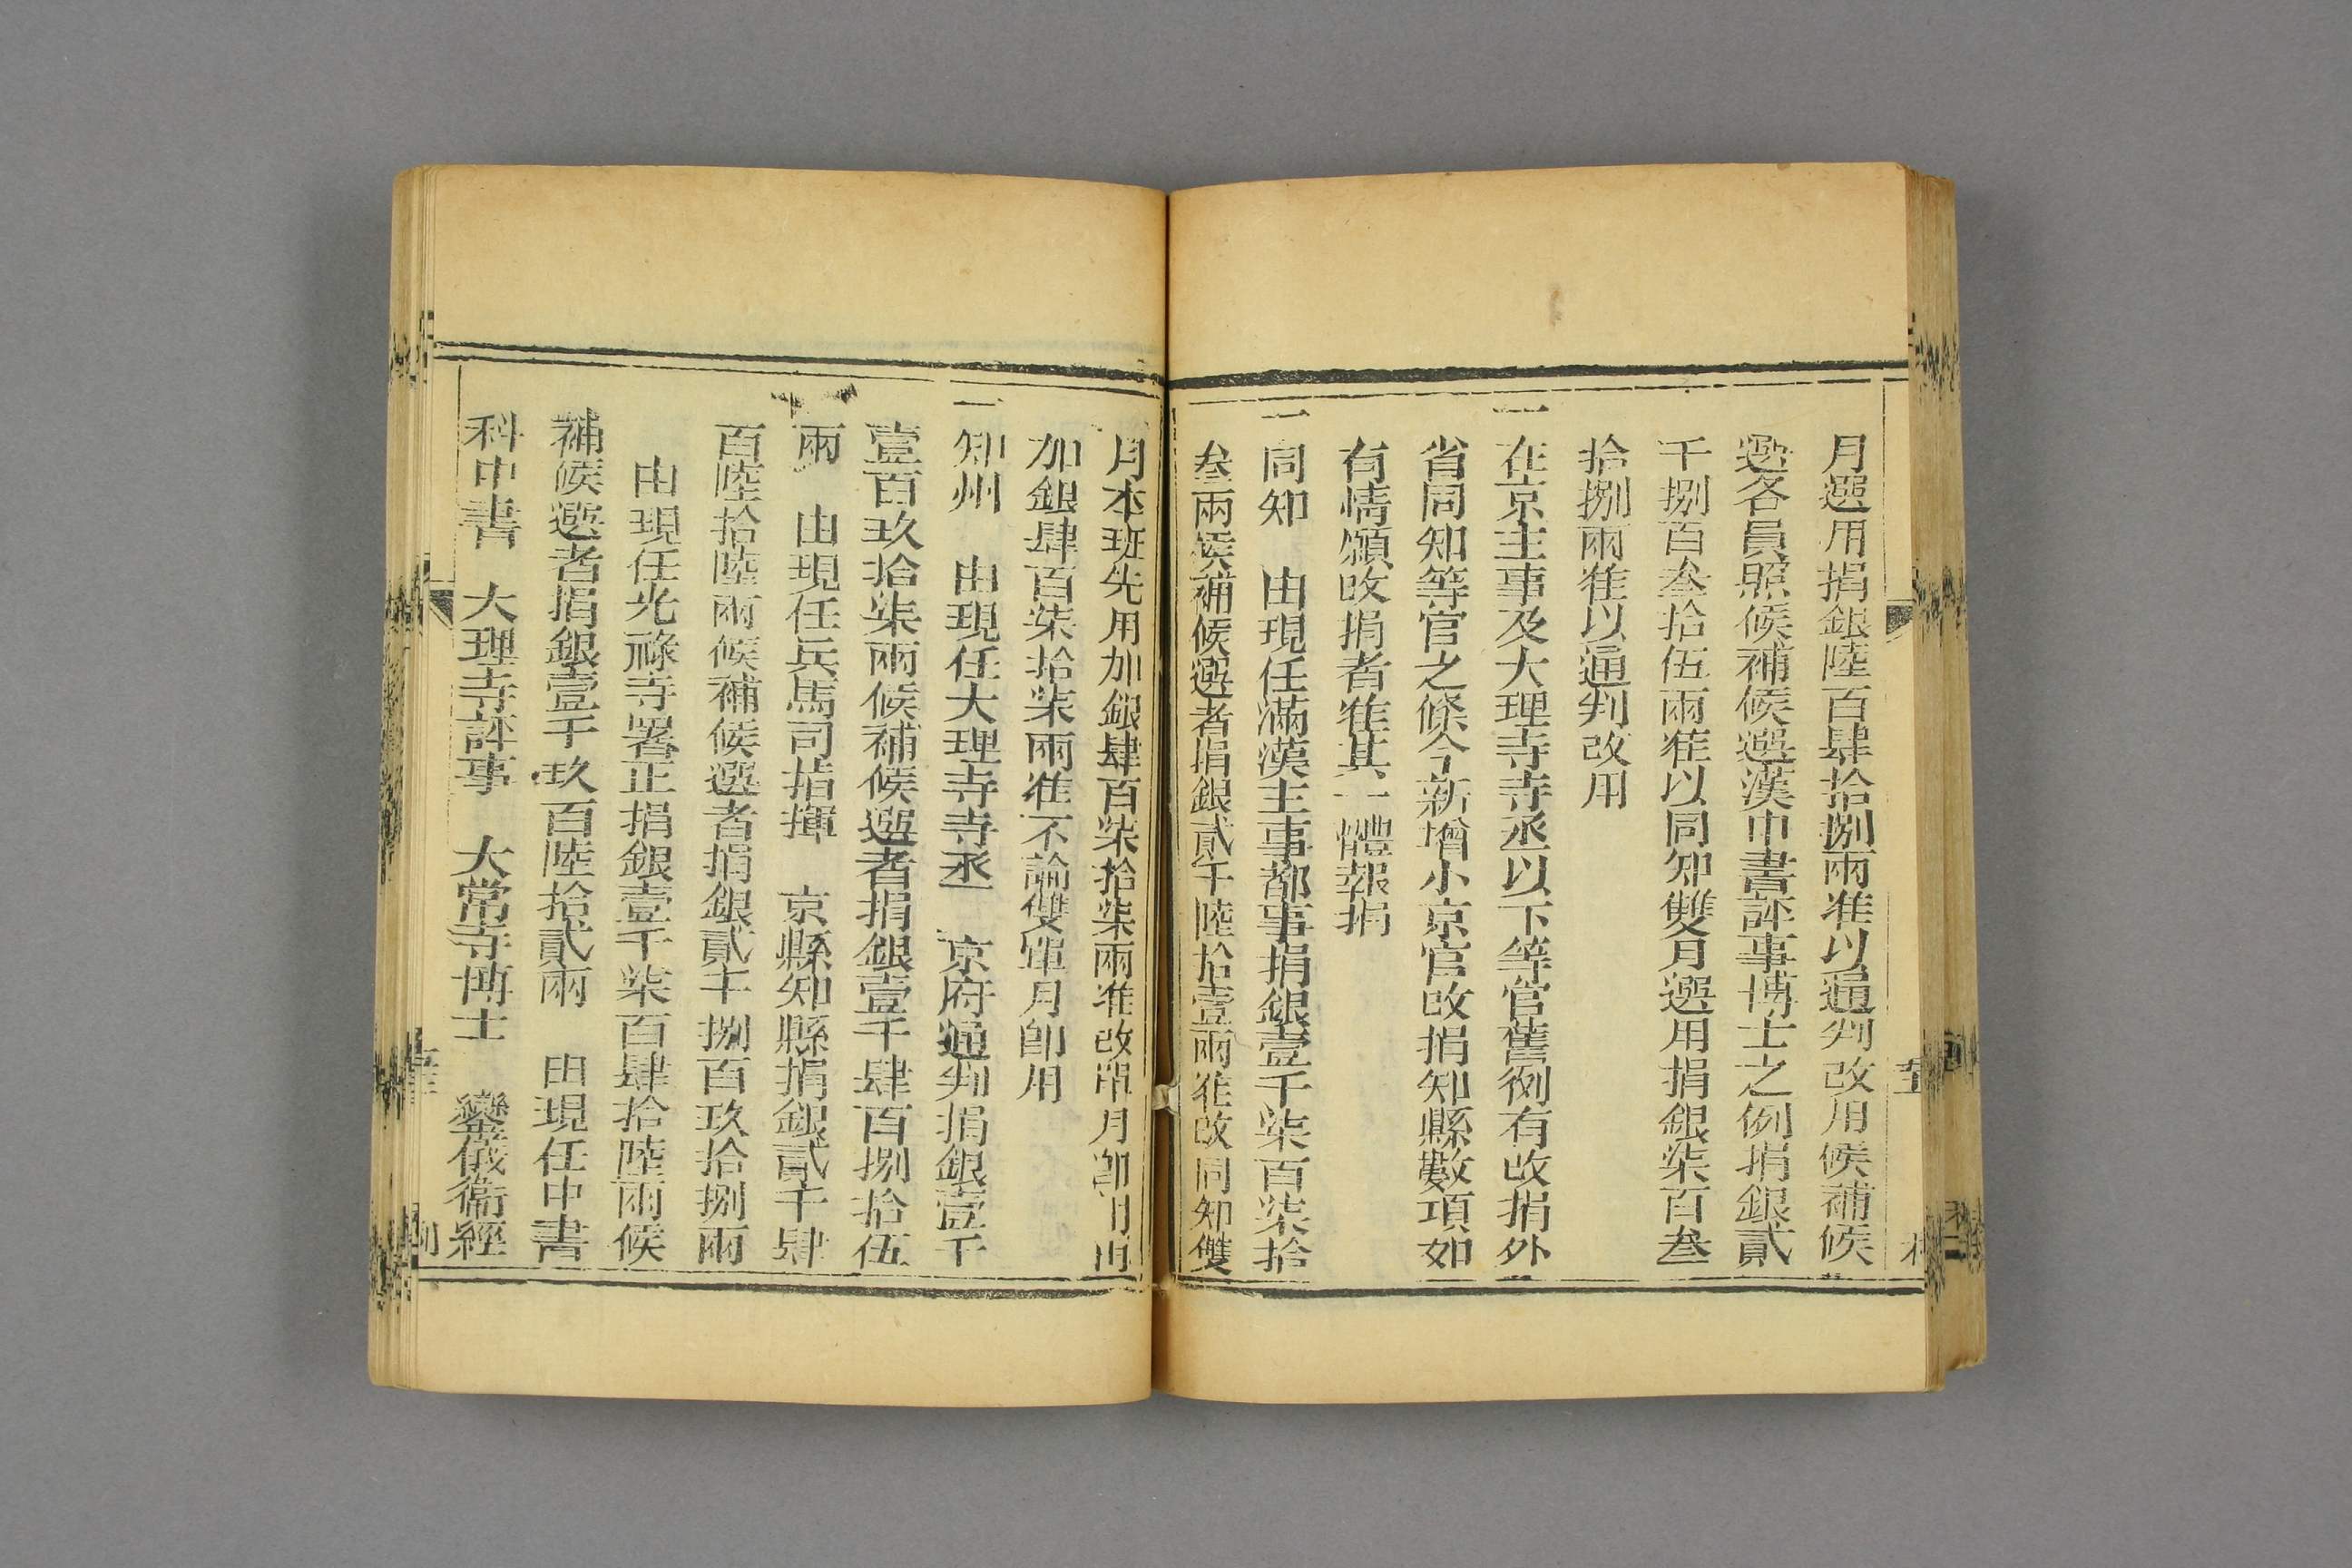 月選用捐銀陸百肆拾捌兩准以通判改用候補候
選各員照候補候選漢中書評事博士之例捐銀貳
千捌百叁拾伍兩准以同知雙月選用捐銀柒百叁
拾捌兩准以通判改用
一在京主事及大理寺寺丞以下等官舊例有改捐外
省同知等官之條今新增小京官改捐知縣數項如
有情願改捐者准其一體報捐
一同知　由現任滿漢主事都事捐銀壹千柒百柒拾
叁兩候補候選者捐銀貳千陸拾壹兩准改同知雙
月本班先用加銀肆百柒拾柒兩准改單月卽用再
加銀肆百柒拾柒兩准不論雙單月卽用
一知州　由現任大理寺寺丞　京府通判捐銀壹千
壹百玖拾柒兩候補候選者捐銀壹千肆百捌拾伍
兩　由現任兵馬司指揮　京縣知縣捐銀貳千肆
百陸拾陸兩候補候選者捐銀貳千捌百玖拾捌兩
由現任光祿寺署正捐銀壹千柒百肆拾陸兩候
補候選者捐銀壹千玖百陸拾貳兩　由現任中書
科中書　大理寺評事　太常寺博士　鑾儀衞經